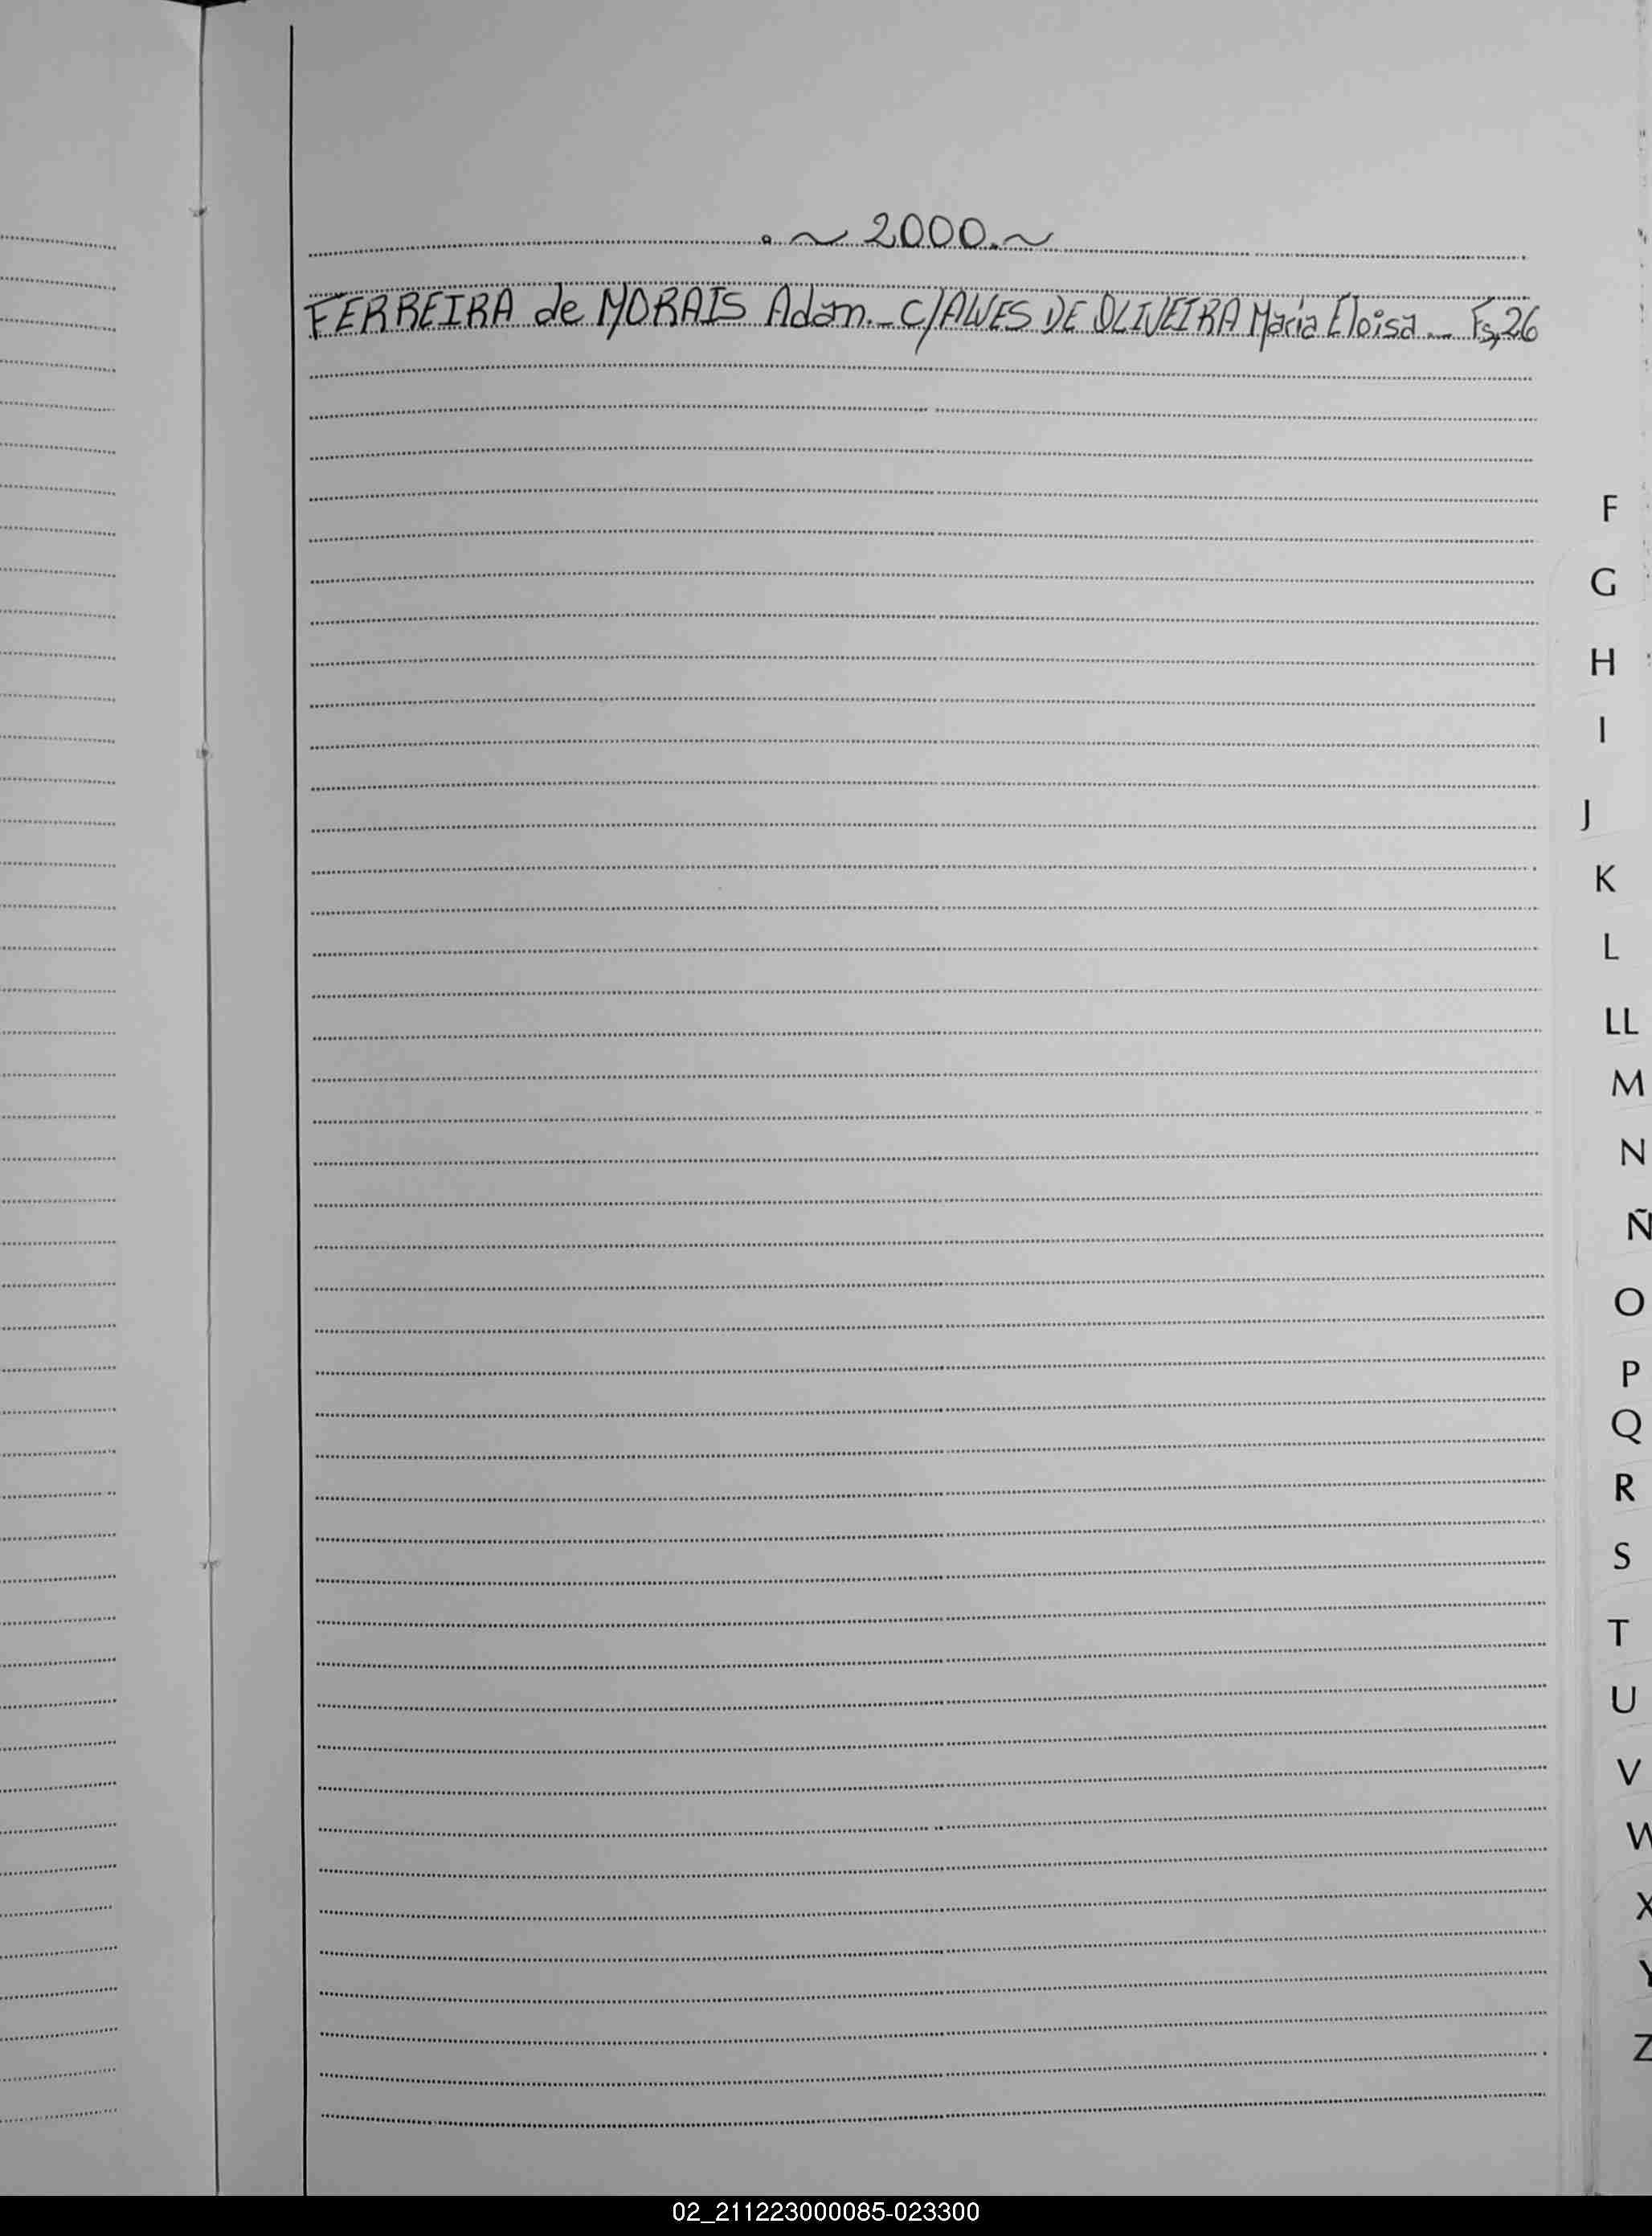 .~ 2000.~
FERREIRA de MORAIS Adam._ C/ALVES DE OLIVEIRA Maria Eloisa __ Fs, 26
F
G
H
I
J
K
L
LL
M
N
Ñ
O
P
Q
R
S
T
U
V
W
X
Y
Z
02_211223000085-023300